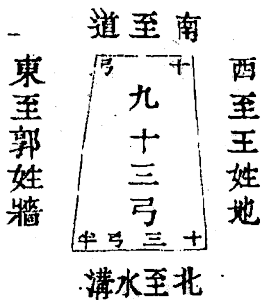 南至道
西至王姓地
十弓
九十三弓
十三弓半
東至郭姓牆
北至水溝